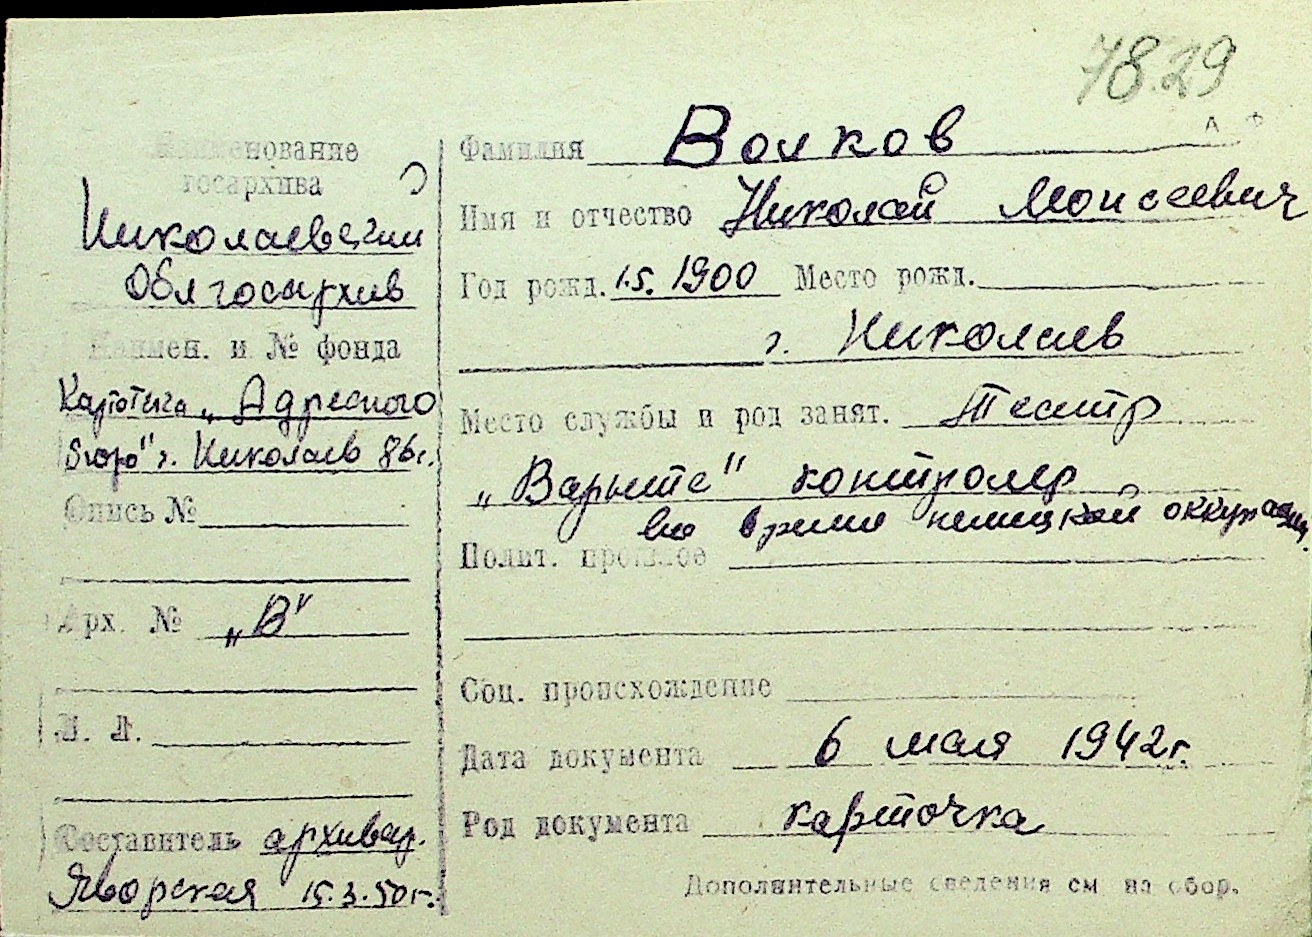 78.29
А Ф
Наименование
госархива
Николаевский
Облгосархив
Наимен. и № фонда
Картотека „Адресного
бюро" г. Николаев 86г.
Опись №
Арх. № „В"
Л. Л.
Составитель архивар.
Яворская 15.3.50г.
Фамилия Волков
Имя и отчество Николай Моисеевич
Год рожд. 1.5. 1900 Место рожд.
г. Николаев
Место службы и род занят. Театр
„Варьете" контролер
во время немецкой оккупации.
Полит. прошлое
Соц. происхождение
Дата документа 6 мая 1942г.
Род документа карточка
Дополнительные сведения см на обор.